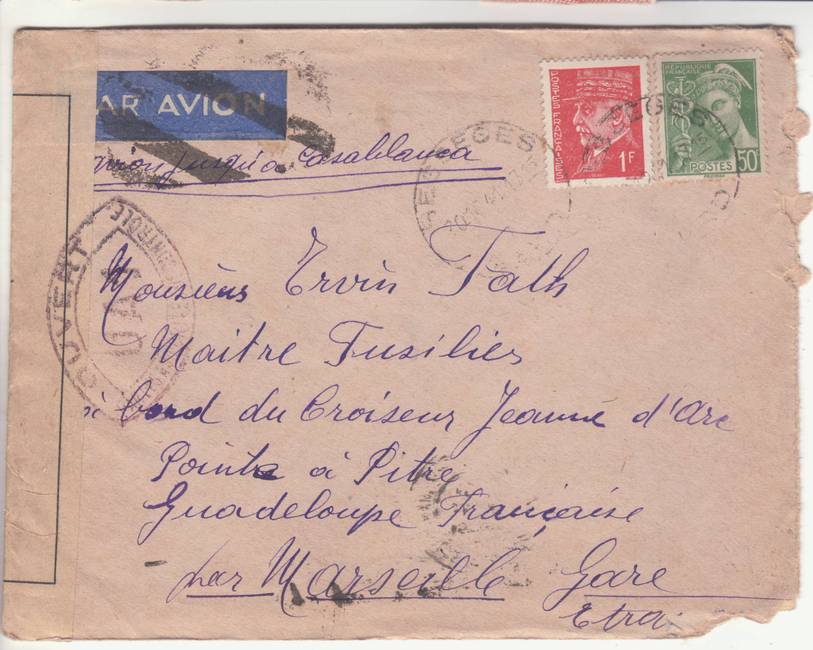 AR AVION
avion jusqu'à Casablanca
POSTES FRANÇAISES
1F
RÉPUBLIQUE FRANÇAISE
POSTES
50
BESSEGES
BESSEGES
OUVERT
CONTROLE
Monsieur Ervin Tath
Maitre Fusilier
à bord du Croiseur Jeanne d'Arc
Pointe à Pitre
Guadeloupe Française
par Marseille Gare